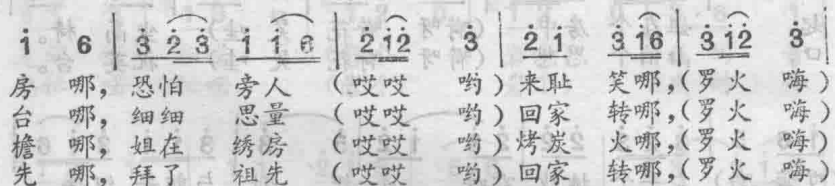 i 6 | 3 2 3 i i 6 | 2 i2 3 | 2 i 3 i6 | 3 i2 3
房 哪，恐怕 旁人 （哎哎 哟）来耻 笑哪，（罗火 嗨）
台 哪，细细 思量 （哎哎 哟）回家 转哪，（罗火 嗨）
檐 哪，姐在 绣房 （哎哎 哟）烤炭 火哪，（罗火 嗨）
先 哪，拜了 祖先 （哎哎 哟）回家 转哪，（罗火 嗨）